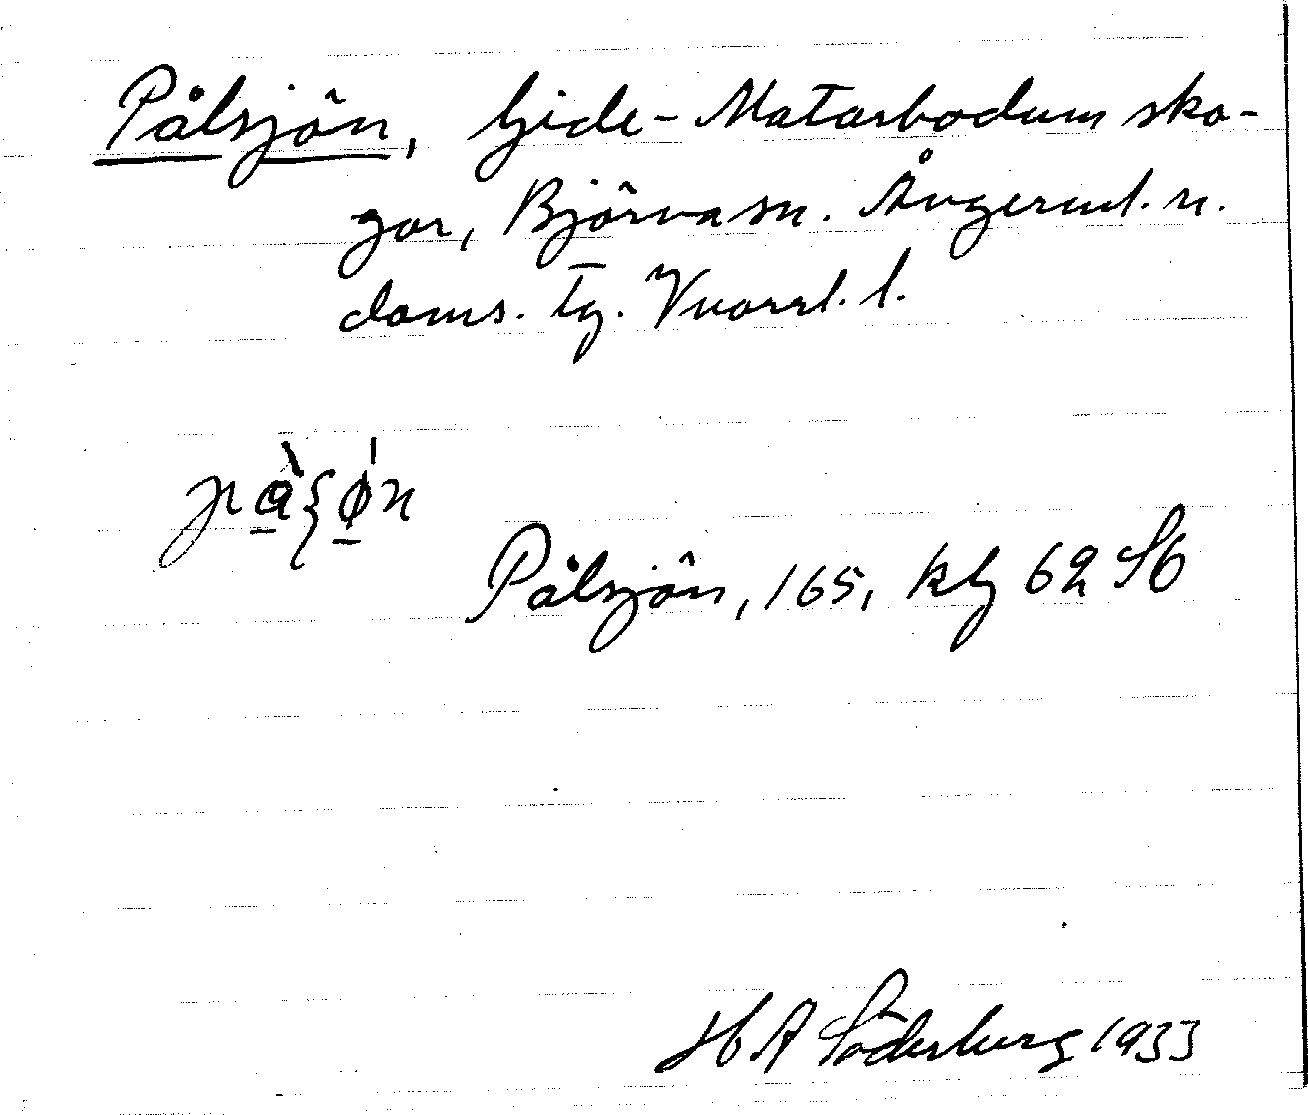 Pålsjön, Gide-Matarbodum sko-
gar, Björna sn. Ångerml. n.
doms. tg. Vnorrl. l.
Pålsjön, 165, kbg 62 S6
H A Söderberg 1933